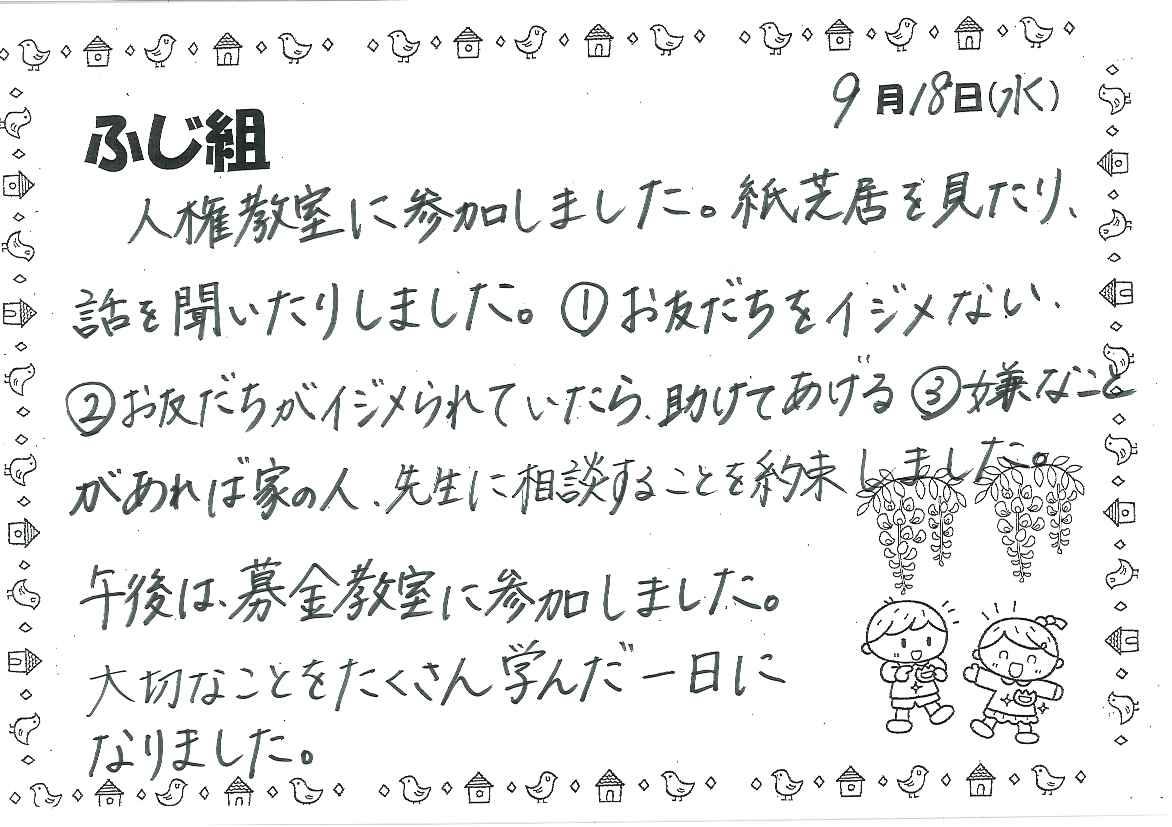 9月18日(水)
ふじ組
人権教室に参加しました。紙芝居を見たり、
話を聞いたりしました。①お友だちをイジメない、
②お友だちがイジメられていたら、助けてあげる③嫌なこと
があれば家の人、先生に相談することを約束しました。
午後は、募金教室に参加しました。
大切なことをたくさん学んだ一日に
なりました。